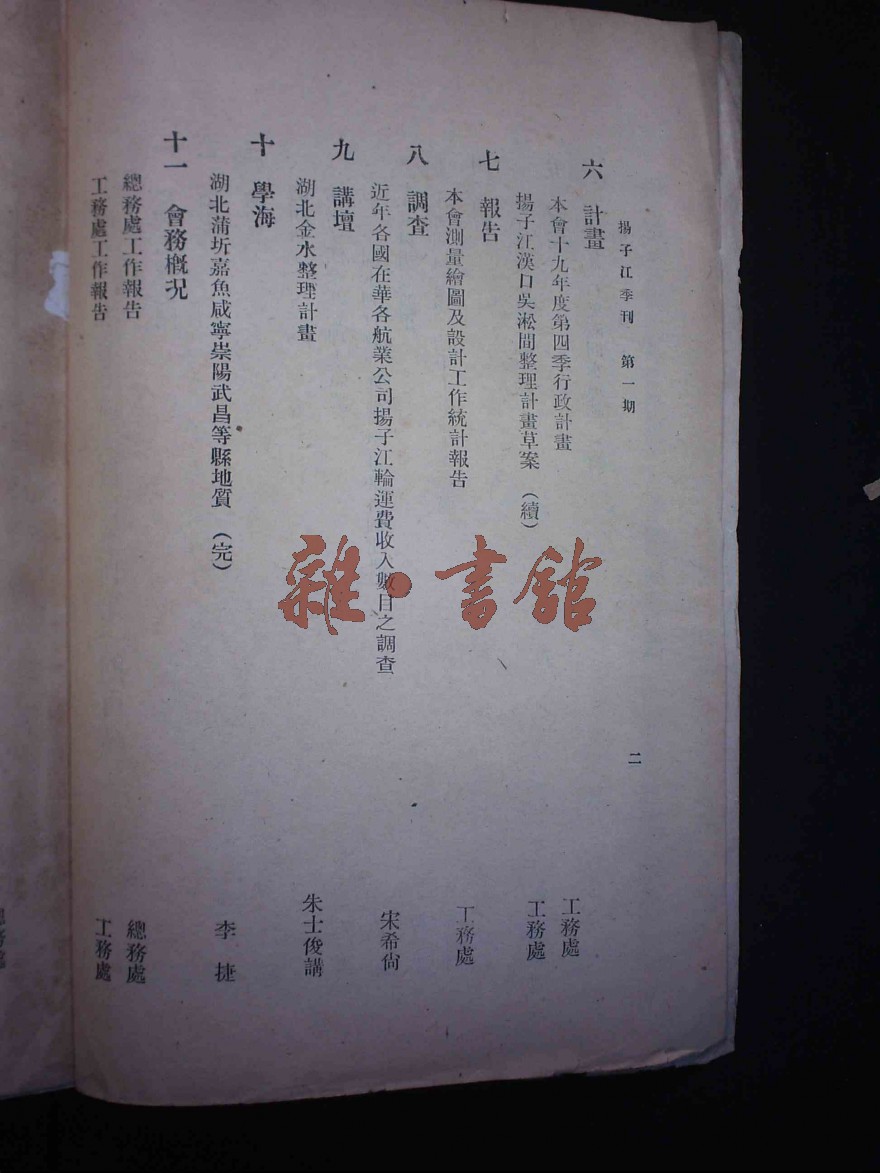 揚子江季刊　第一期
二
六　計畫
本會十九年度第四季行政計畫　工務處
揚子江漢口吳淞間整理計畫草案（續）　工務處
七　報告
本會測量繪圖及設計工作統計報告　工務處
八　調查
近年各國在華各航業公司揚子江輪運費收入數目之調查　宋希尙
九　講壇
湖北金水整理計畫　朱士俊講
十　學海
湖北蒲圻嘉魚咸寧崇陽武昌等縣地質（完）　李捷
十一　會務槪况
總務處工作報告　總務處
工務處工作報告　工務處
雜·書館